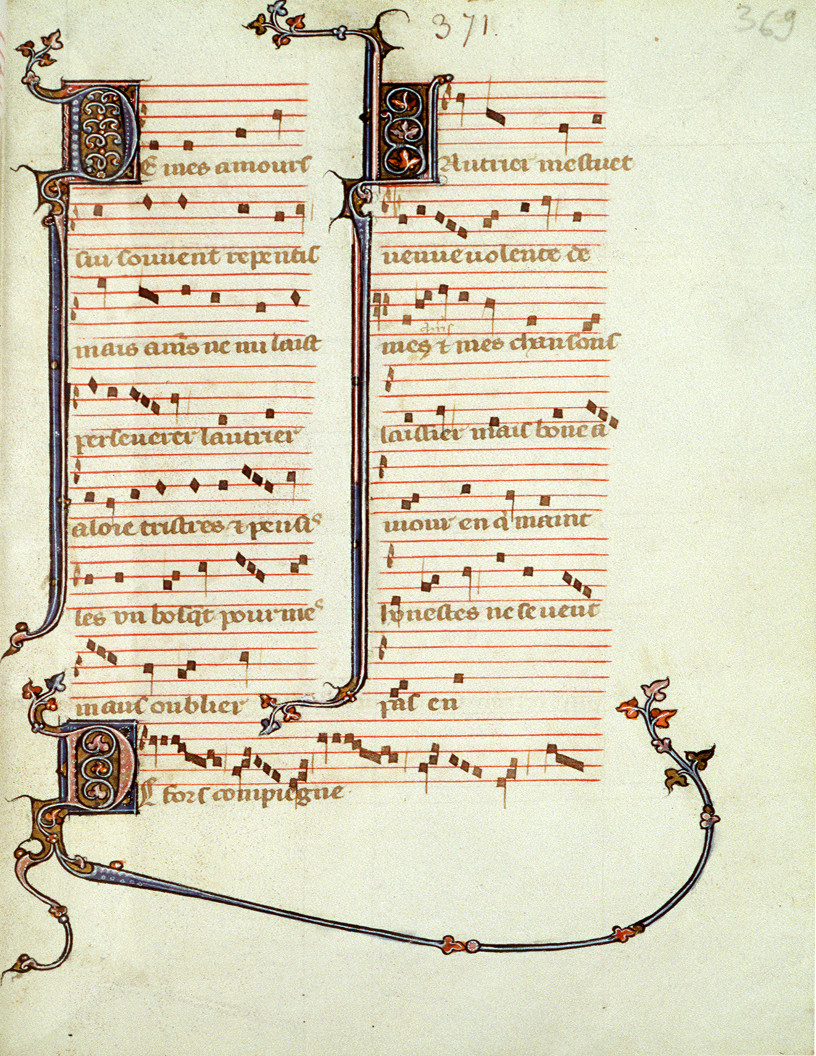 371.
369
DE mes amours
sui souvent repentis
mais amis ne mi laist
perseverer lautrier
aloie tristres ⁊ pensis
les un bosqt pour mes
maus oublier
LAutrier mestuet
venue volente de
mes ⁊ mes chansons
laissier mais bone a
mour en q maint
honestes ne se veut
pas en
DE fors compiegne